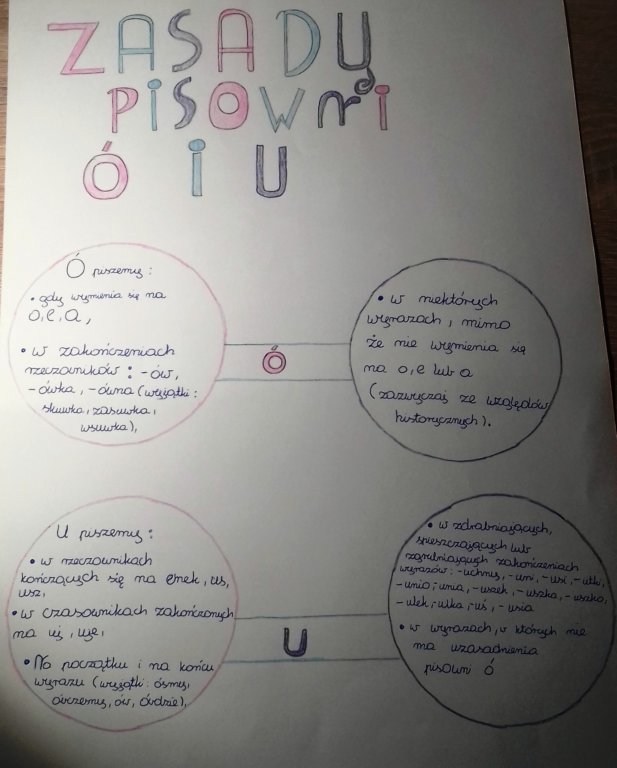 ZASADY
PISOWNI
Ó i U
Ó piszemy:
• gdy wymienia się na
o, e, a,
• w zakończeniach
rzeczowników: -ów,
-ówka, -ówna (wyjątki:
skuwka, zasuwka,
wsuwka),
Ó
• w niektórych
wyrazach, mimo
że nie wymienia się
na o, e lub a
(zazwyczaj ze względów
historycznych).
U piszemy:
• w rzeczownikach
kończących się na unek, us,
usz,
• w czasownikach zakończonych
na uj, uje,
• Na początku i na końcu
wyrazu (wyjątki: ósmy,
ów, ówdzie),
U
• w zdrabniających,
spieszczających lub
zgrubiających zakończeniach
wyrazów: -uchny, -uni, -usi, -utki,
-unio, -unia, -uszek, -uszka, -uszko,
-ulek, -ulka, -uś, -usia
• w wyrazach, w których nie
ma uzasadnienia
pisowni ó